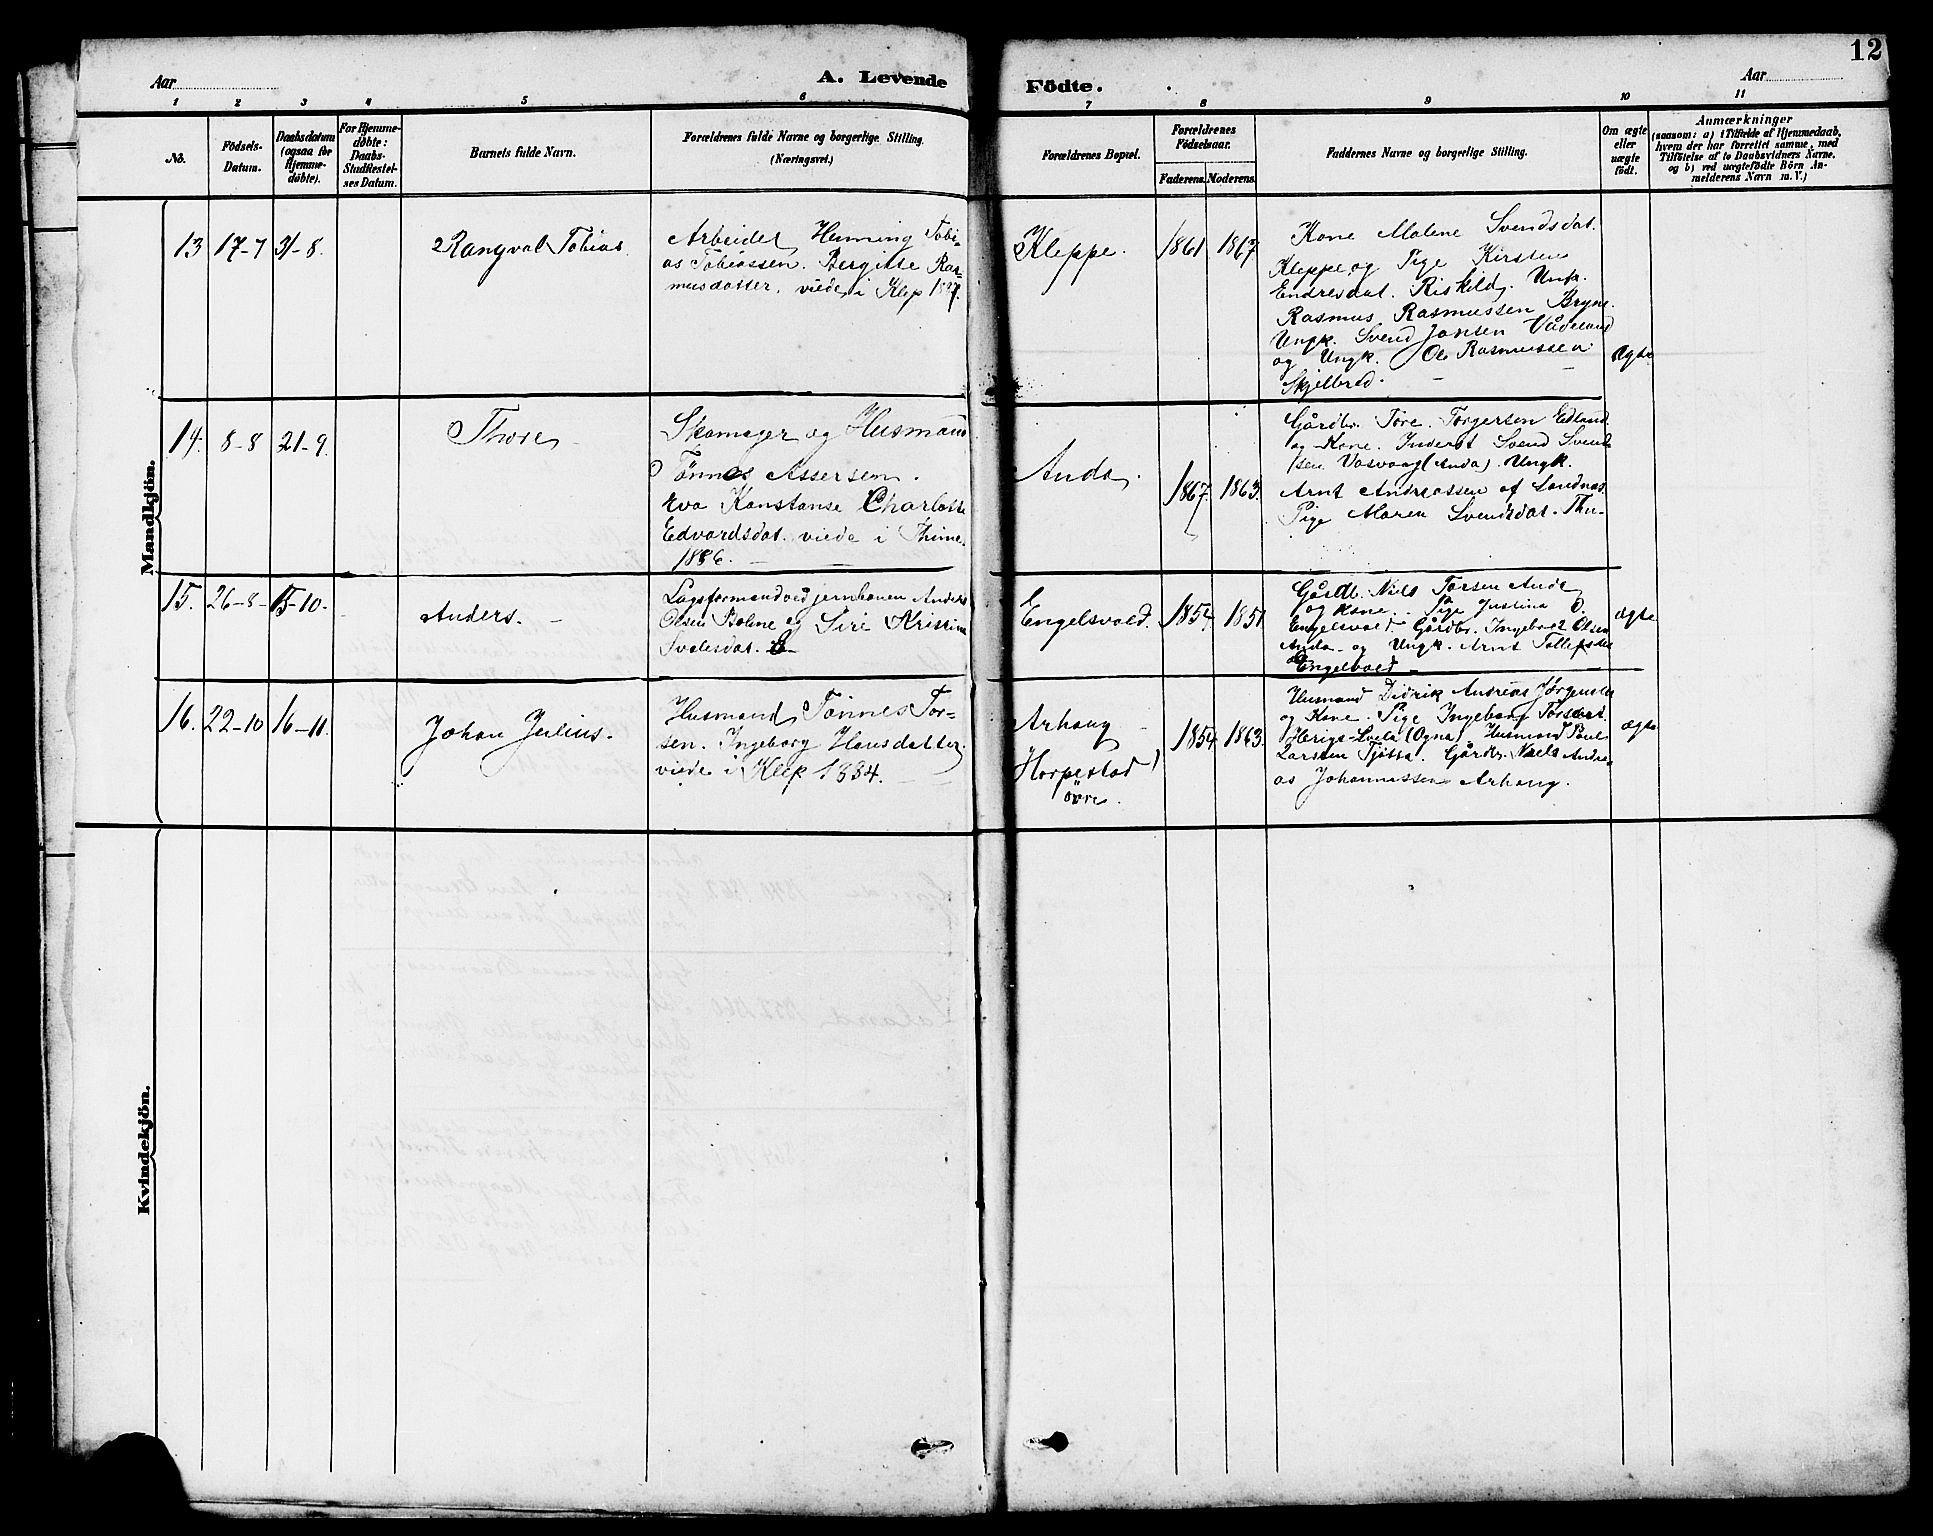 12
Aar
A. Levende
Födte.
Aar
1 2 3 4 5 6 7 8 9 10 11
No.
Födsels-
Datum.
Daabsdatum
(ogsaa for
Hjemme-
döbte).
For Hjemme-
döbte:
Daabs-
Stadfæstel-
ses Datum.
Barnets fulde Navn.
Forældrenes fulde Navne og borgerlige Stilling.
(Næringsvei.)
Forældrenes Bopæl.
Forældrenes
Födselsaar.
Faderens.
Moderens.
Faddernes Navne og borgerlige Stilling.
Om ægte
eller
uægte
födt.
Anmærkninger
(saasom: a) i Tilfælde af Hjemmedaab,
hvem der har forrettet samme, med
Tilföielse af to Daabsvidners Navne,
og b) ved uægtefödte Börn An-
melderens Navn m. V.)
Mandkjön.
13 17-7 31-8.
Rangval Tobias
Arbeider Henning Tobi-
as Tobiassen. Bergitte Ras-
musdatter, viede i Klep
Kleppe.
1861 1867
Kone Malene Svendsdat.
Kleppe og Pige Kirsten
Endresdat. Riskild. Ungk.
Rasmus Rasmussen Bryne.
Ungk. Svend Jansen Vådeland
og Ungk. Ole Rasmussen
Skjelbred.
Ægte
14. 8-8 21-9.
Thore
Skomager og Husmand
Tönnes Assersen.
Eva Konstanse Charlotte
Edvardsdat. viede i Thime
1886.
Anda.
1867. 1863.
Gårdbr. Tore Torgersen Edland
og Kone. Inderst Svend Svend-
sen Vasvaag (Anda). Ungk.
Arnt Andreassen af Sandnæs.
Pige Maren Svendsdat. Thu-
15. 26-8- 15-10.
Anders.
Lagsformand ved jernbanen Anders
Olsen Bolme og Siri Kristine
Svalesdat.
Engelsvold.
1854. 1851
Gårdb. Niels Torsen Anda
og Kone. Pige Justina O.
Engelsvold. Gårdbr. Ingebret Olsen
Anda og Ungk. Arnt Tollefsen
Engelvold
ægte
16. 22-10 16-11.
Johan Julius.
Husmand Tönnes Tor-
sen. Ingeborg Hansdatter.
viede i Klep 1884.
Arhaug
Horpestad
övre.
1854. 1863.
Husmand Didrik Andreas Jörgensen
og Kone. Pige Ingeborg Torsdat.
Herigs-Lvela (Ogna). Husmand Paul
Larsten Tjötta. Gårdbr. Niels Andre-
as Johannessen Arhaug.
ægte
Kvindekjön.